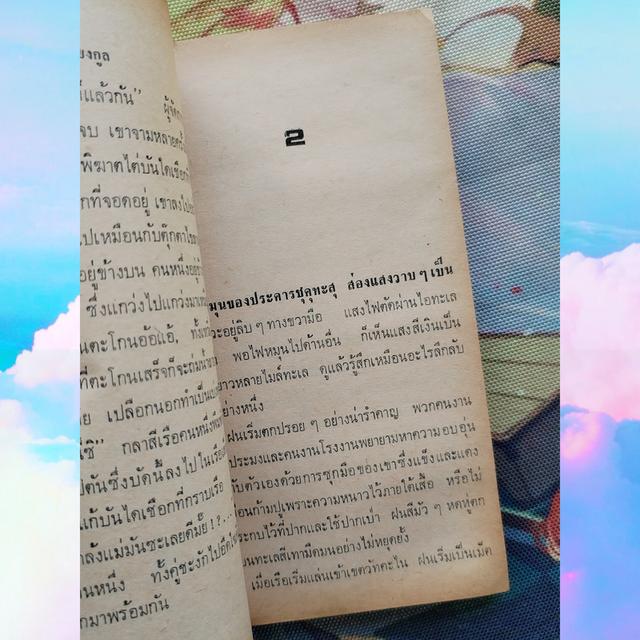 ยงกูล
แล้วกัน" ผู้จัดก
จบ เขาจามหลายคร
พิฆาตไต่บันไดเชือก
กที่จอดอยู่ เขาลงไป
ไปเหมือนกับตุ๊กตาไข
อยู่ข้างบน คนหนึ่งอยู่
ซึ่งแกว่งไปแกว่งมาเห
นตะโกนอ้อแอ้, ทั้งเ
ที่ตะโกนเสร็จก็จะถ่มน้ำ
ย เปลือกนอกทำเป็นแ
กลาสีเรือคนหนึ่งพ
ปตันซึ่งบัดนี้ลงไปในเรือ
แก้บันไดเชือกที่กราบเรือ
กลังแม่มันซะเลยดีมั๊ย !?...
นหนึ่ง ทั้งคู่ชะงักไปอึดใจ
กมาพร้อมกัน
2
มุนของประดารชุดุทะสุ ส่องแสงวาบ ๆ เป็น
วะอยู่ลิบ ๆ ทางขวามือ แสงไฟตัดผ่านไอทะเล
พอไฟหมุนไปด้านอื่น ก็เห็นแสงสีเงินเป็น
ยาวหลายไมล์ทะเล ดูแล้วรู้สึกเหมือนอะไรลึกลับ
อย่างหนึ่ง
ฝนเริ่มตกปรอย ๆ อย่างน่ารำคาญ พวกคนงาน
ประมงและคนงานโรงงานพยายามหาความอบอุ่น
บตัวเองด้วยการซุกมือของเขาซึ่งแข็งและแดง
อนก้ามปูเพราะความหนาวไว้ภายใต้เสื้อ หรือไม่
ระกบไว้ที่ปากและใช้ปากเป่า ฝนสีมัว ๆ หดหู่ตก
นทะเลสีเทามืดมนอย่างไม่หยุดยั้ง
เมื่อเรือเริ่มแล่นเข้าเขตวักคะไน ฝนเริ่มเป็นเม็ด